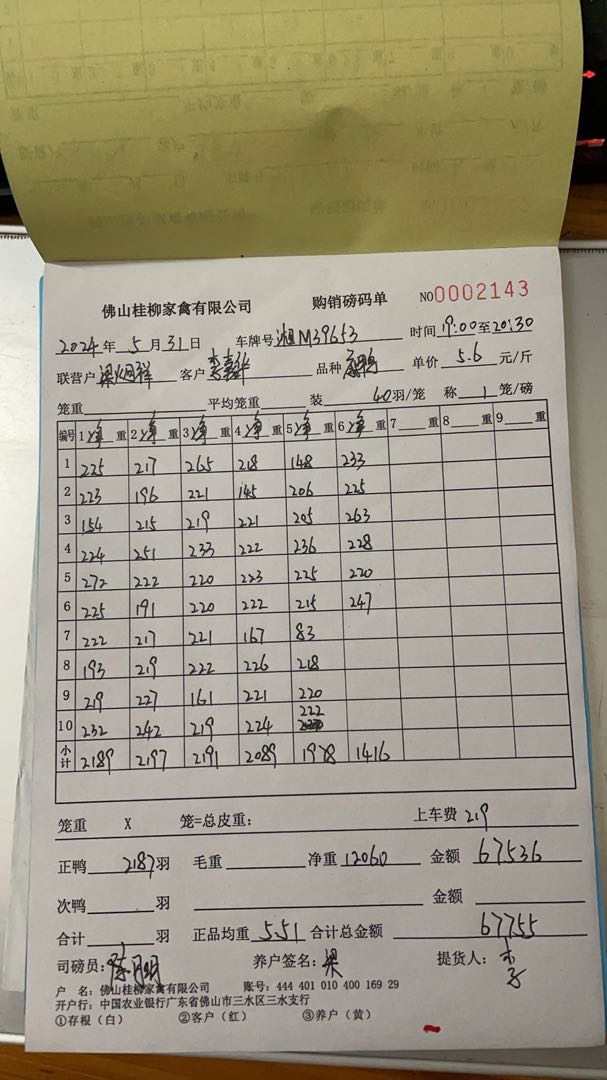 佛山桂柳家禽有限公司 购销磅码单 NO0002143
2024年5月31日 车牌号湘M39653 时间19:00至20:30
联营户 客户 品种 单价5.6元/斤
笼重 平均笼重 装40羽/笼 称1笼/磅
编号 1净重 2净重 3净重 4净重 5净重 6净重 7重 8重 9重
1 225 217 265 218 148 233
2 223 196 221 145 206 225
3 154 215 219 221 205 263
4 224 251 233 222 236 228
5 272 222 220 223 225 220
6 225 191 220 222 215 247
7 222 217 221 167 83
8 193 219 222 226 218
9 219 227 161 221 220
10 232 242 219 224 222
小计 2189 2197 2191 2089 1978 1416
笼重 X 笼=总皮重: 上车费219
正鸭2187羽 毛重 净重12060 金额67536
次鸭羽 金额
合计羽 正品均重5.51 合计总金额67755
司磅员: 养户签名:梁 提货人:李
户 名:佛山桂柳家禽有限公司 账号:444 401 010 400 169 29
开户行:中国农业银行广东省佛山市三水区三水支行
①存根(白) ②客户(红) ③养户(黄)